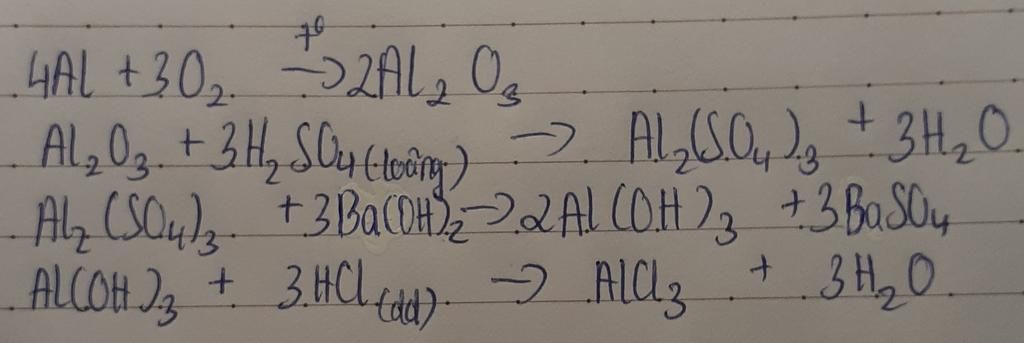 4Al + 3O₂ —t°→ 2Al₂O₃
Al₂O₃ + 3H₂SO₄ (loãng) → Al₂(SO₄)₃ + 3H₂O
Al₂(SO₄)₃ + 3Ba(OH)₂ → 2Al(OH)₃ + 3BaSO₄
Al(OH)₃ + 3HCl (dd) → AlCl₃ + 3H₂O